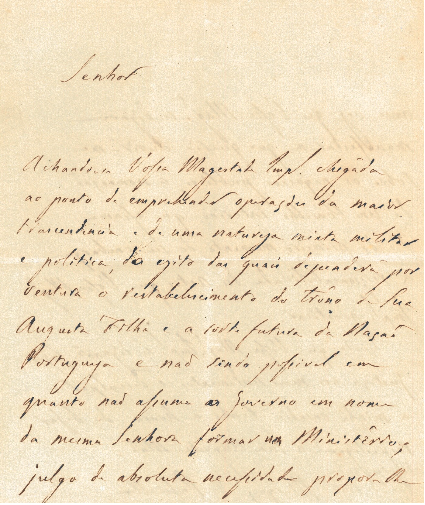 Senhor
Achandose Vossa Magestade Imp. chegada
ao ponto de emprehender operações da maior
transcendencia e de uma natureza mixta militar
e politica, do exito das quais dependerá por
ventura o restabelecimento do trôno de Sua
Augusta Filha e a sorte futura da Nação
Portugueza e não sendo possivel em
quanto não assuma o Governo em nome
da mesma Senhora formar um Ministério,
julgo de absoluta necessidade propor a